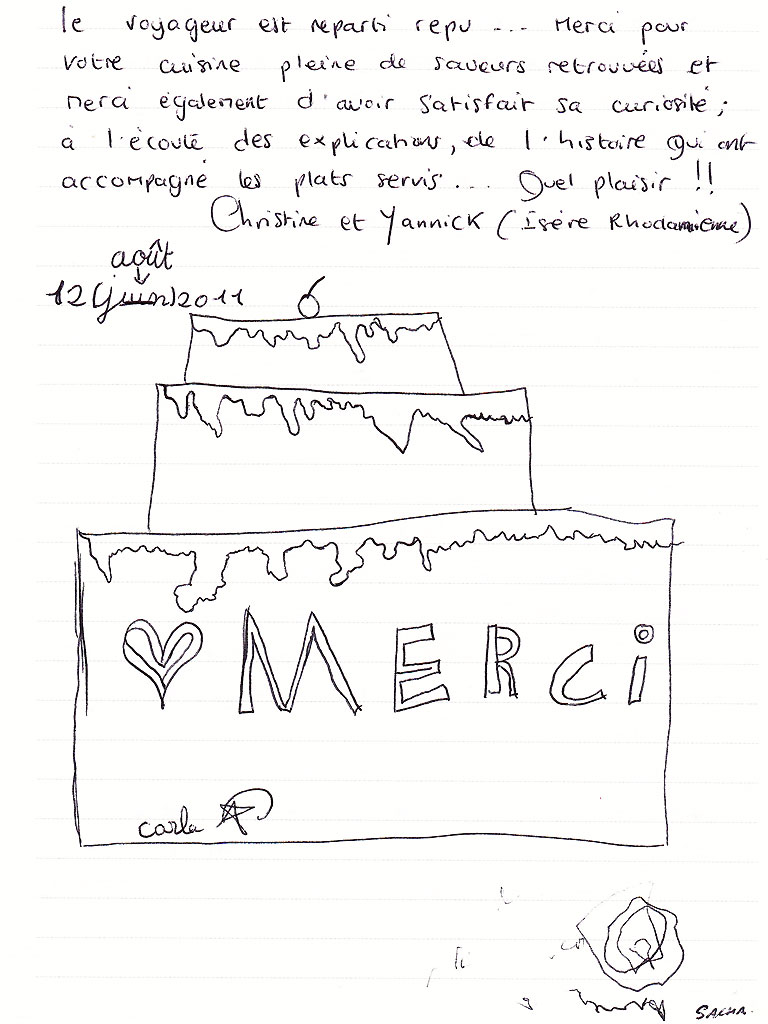 le voyageur est reparti repu ... Merci pour
votre cuisine pleine de saveurs retrouvées et
merci également d'avoir satisfait sa curiosité ;
à l'écoute des explications, de l'histoire qui ont
accompagné les plats servis ... Quel plaisir !!
Christine et Yannick (Isère Rhodanienne)
août
12 (juin) 2011
MERCi
carla
SACHA.